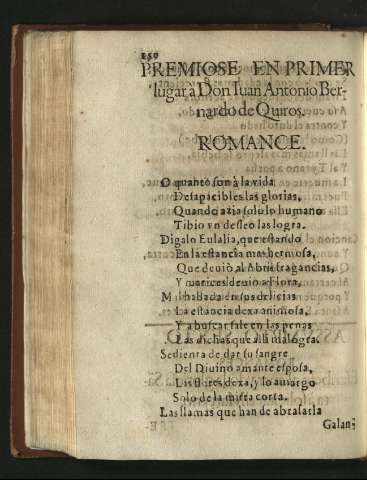 150
PREMIOSE EN PRIMER
lugar a Don Iuan Antonio Ber-
nardo de Quiros.
ROMANCE.
O quanto son à la vida
Desapacibles las glorias,
Quando azia solo lo humano
Tibio vn desseo las logra.
Digalo Eulalia, que estando
En la estancia mas hermosa,
Que deuiò al Abril fragancias,
Y matices deuio a Flora,
Mal hallada en sus delicias
La estancia dexa animosa,
Y a buscar sale en las penas
Las dichas que alli malogra.
Sedienta de dar su sangre
Del Diuino amante esposa,
Las flores dexa, y lo amargo
Solo de la mirra corta.
Las llamas que han de abrasarla
Galan-